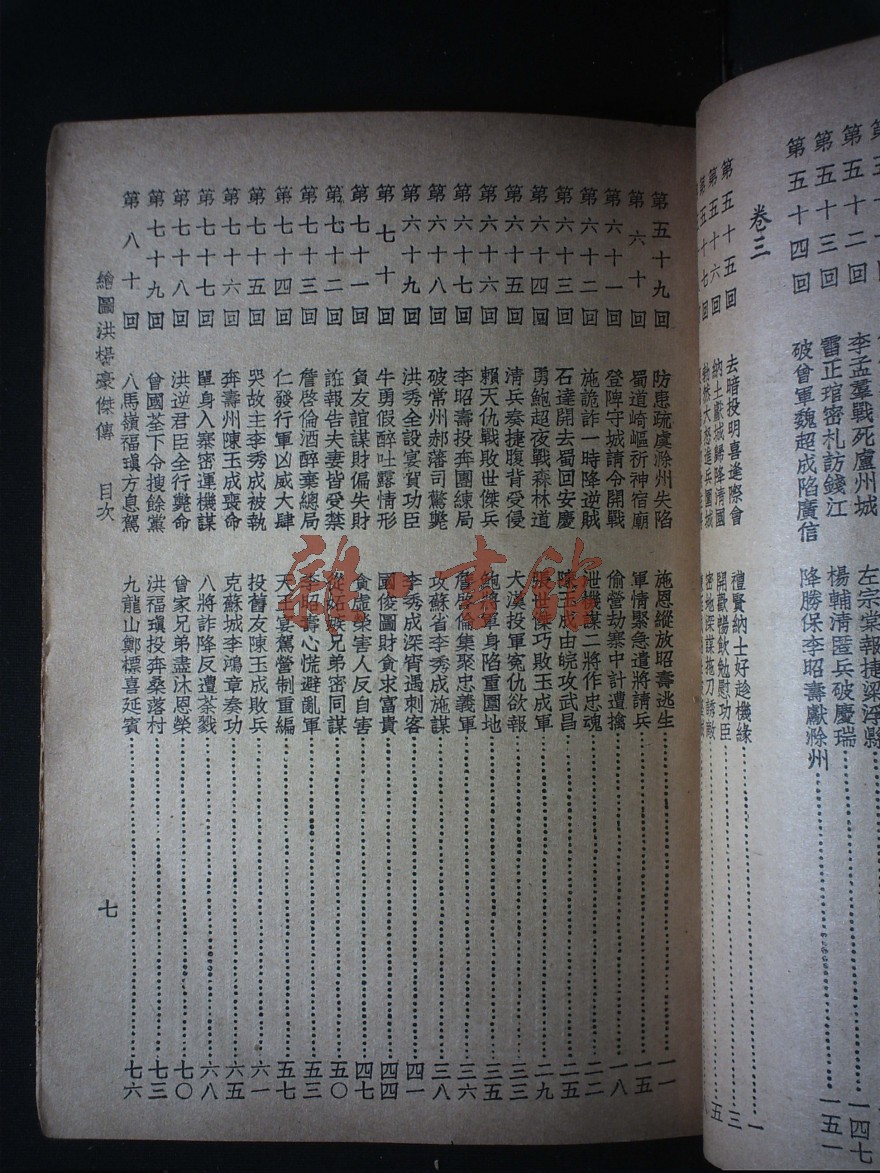 第五十二回 李孟羣戰死盧州城 左宗棠報捷樂浮縣
第五十三回 雷正琯密札訪錢江 楊輔淸匿兵破慶瑞 一四七
第五十四回 破曾軍魏超成陷廣信 降勝保李昭壽獻滁州 一五一
卷三
第五十五回 去暗投明喜逢際會 禮賢納士好趁機緣 一
第五十六回 納土獻城歸降淸國 開歡暢飲勉慰功臣 三
第五十七回 勃然大怒進兵圍城 密地深謀拖刀誘敵 五
第五十九回 防患疏虞滁州失陷 施恩縱放昭壽逃生 一一
第六十回 蜀道崎嶇祈神宿廟 軍情緊急遣將請兵 一五
第六十一回 登陴守城請令開戰 偷營劫寨中計遭擒 一八
第六十二回 施詭詐一時降逆賊 泄機謀二將作忠魂 二二
第六十三回 石達開去蜀回安慶 陳玉成由皖攻武昌 二五
第六十四回 勇鮑超夜戰森林道 張世傑巧敗玉成軍 二九
第六十五回 淸兵奏捷腹背受侵 大漢投軍寃仇欲報 三三
第六十六回 賴天仇戰敗世傑兵 鮑將軍身陷重圍地 三五
第六十七回 李昭壽投奔團練局 詹啓倫集聚忠義軍 三六
第六十八回 破常州郝藩司驚斃 攻蘇省李秀成施謀 三八
第六十九回 洪秀全設宴賀功臣 李秀成深宵遇刺客 四一
第七十回 牛勇假醉吐露情形 圖俊圖財貪求富貴 四四
第七十一回 負友誼謀財偏失財 貪虛榮害人反自害 四七
第七十二回 誑報告夫妻皆受禁 從妬嫉兄弟密同謀 五〇
第七十三回 詹啓倫酒醉棄總局 李昭壽心慌避亂軍 五三
第七十四回 仁發行軍凶威大肆 天王宴駕營制重編 五七
第七十五回 哭故主李秀成被執 投舊友陳玉成敗兵 六一
第七十六回 奔壽州陳玉成喪命 克蘇城李鴻章奏功 六五
第七十七回 單身入寨密運機謀 八將詐降反遭荼戮 六八
第七十八回 洪逆君臣全行斃命 曾家兄弟盡沐恩榮 七〇
第七十九回 曾國荃下令搜餘黨 洪福瑱投奔桑落村 七三
第八十回 八馬嶺福瑱方息駕 九龍山鄭標喜延賓 七六
繪圖洪楊豪傑傳 目次
七
雜·書館